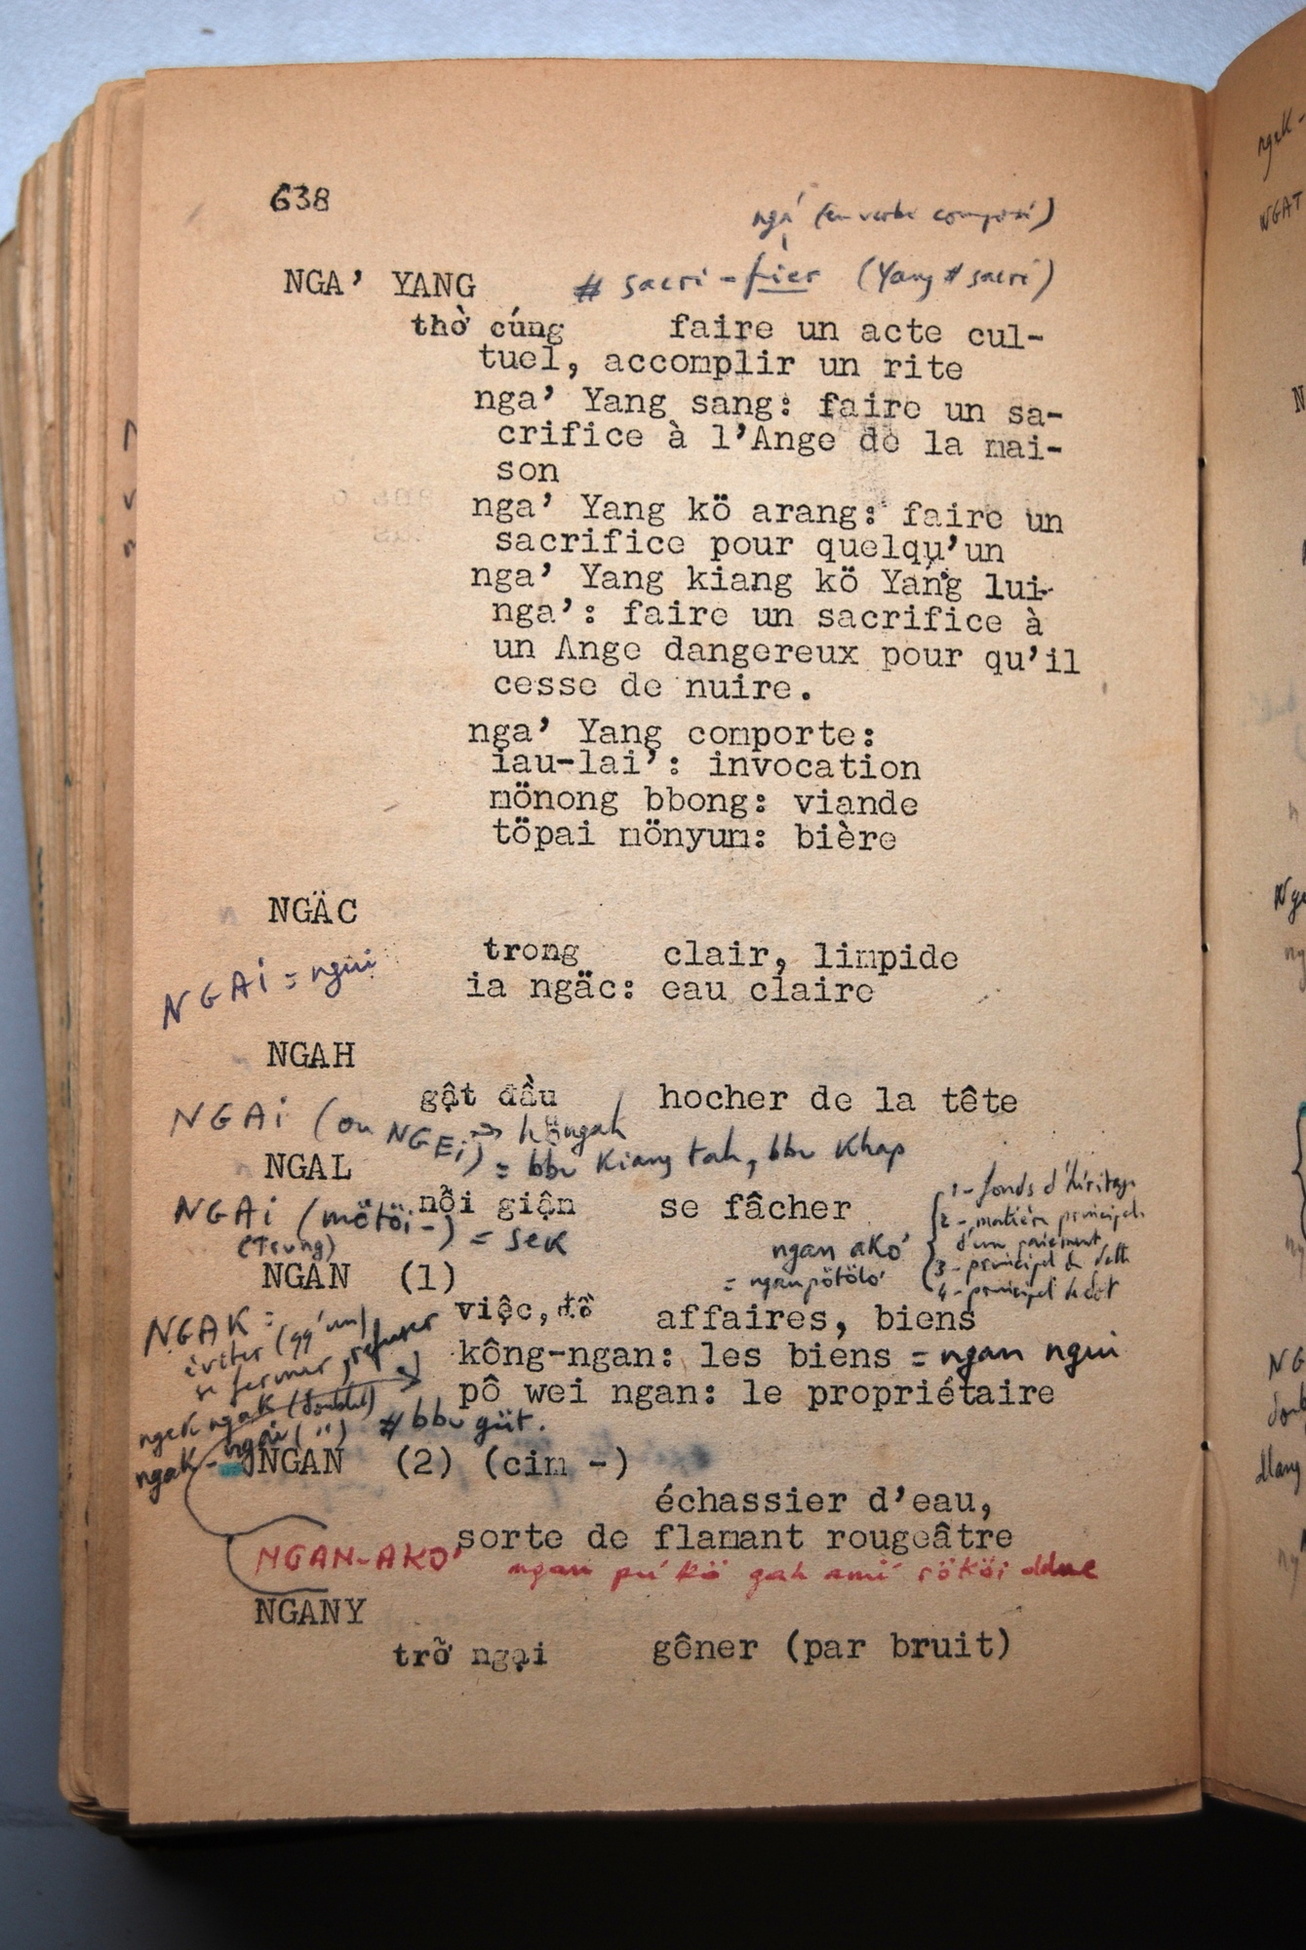 638
nga' (en verbe composé)
NGA' YANG # sacri-fier (Yang # sacri)
thờ cúng faire un acte cul-
tuel, accomplir un rite
nga' Yang sang: faire un sa-
crifice à l'Ange de la mai-
son
nga' Yang kö arang: faire un
sacrifice pour quelqu'un
nga' Yang kiang kö Yang lui
nga': faire un sacrifice à
un Ange dangereux pour qu'il
cesse de nuire.
nga' Yang comporte:
iau-lai': invocation
mönong bbong: viande
töpai mönyum: bière
NGÄC
trong clair, limpide
NGAI = ngui
ia ngäc: eau claire
NGAH
gật đầu hocher de la tête
NGAI (ou NGEI) = bbu kiang tah, bbu khap
→ höngah
NGAL
nỗi giận se fâcher
NGAI (mötöi-) = sek
(Trung)
ngan ako'
= ngan pötölo'
1- fonds d'héritage
2- matière principale
d'un paiement
3- principal de dette
4- principal de dot
NGAN (1)
việc, đồ affaires, biens
NGAK =
éviter (qq'un)
se fermer, refuser
kông-ngan: les biens = ngan ngui
pô wei ngan: le propriétaire
ngek ngak (doublet)
ngak-ngai (") # bbu güt.
NGAN (2) (cim -)
échassier d'eau,
sorte de flamant rougeâtre
NGAN-AKO' ngan pu' kö gah ami' rököi ddue
NGANY
trở ngại gêner (par bruit)
ngak-
NGAT